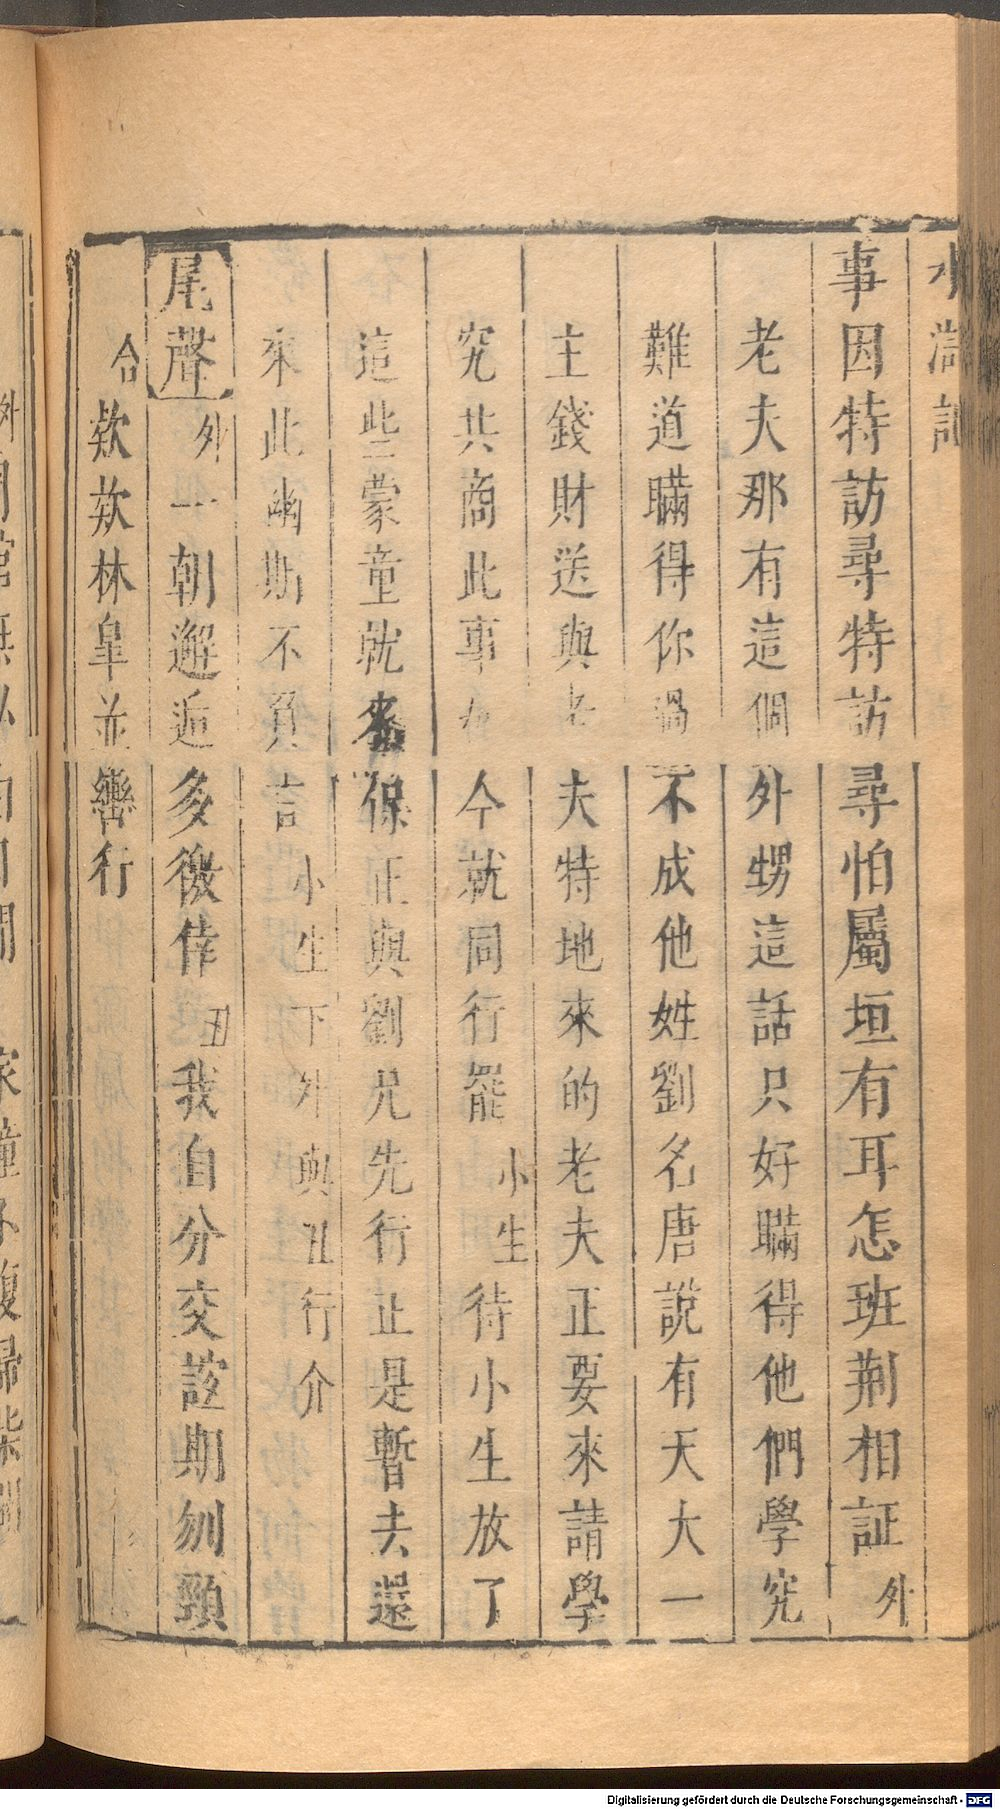 水滸記
事因特訪尋特訪尋怕屬垣有耳怎班荆相証外
老夫那有這個外甥這話只好瞞得他們學究
難道瞞得你過不成他姓劉名唐説有天大一
主錢財送與老夫特地來的老夫正要來請學
究共商此事如今就同行罷小生待小生放了
這些蒙童就來保正與劉兄先行正是暫去還
來此幽期不負言小生下外與丑行介
尾聲外一朝邂逅多徼倖丑我自分交誼期刎頸
合欸欸林臯並轡行
Digitalisierung gefördert durch die Deutsche Forschungsgemeinschaft - DFG